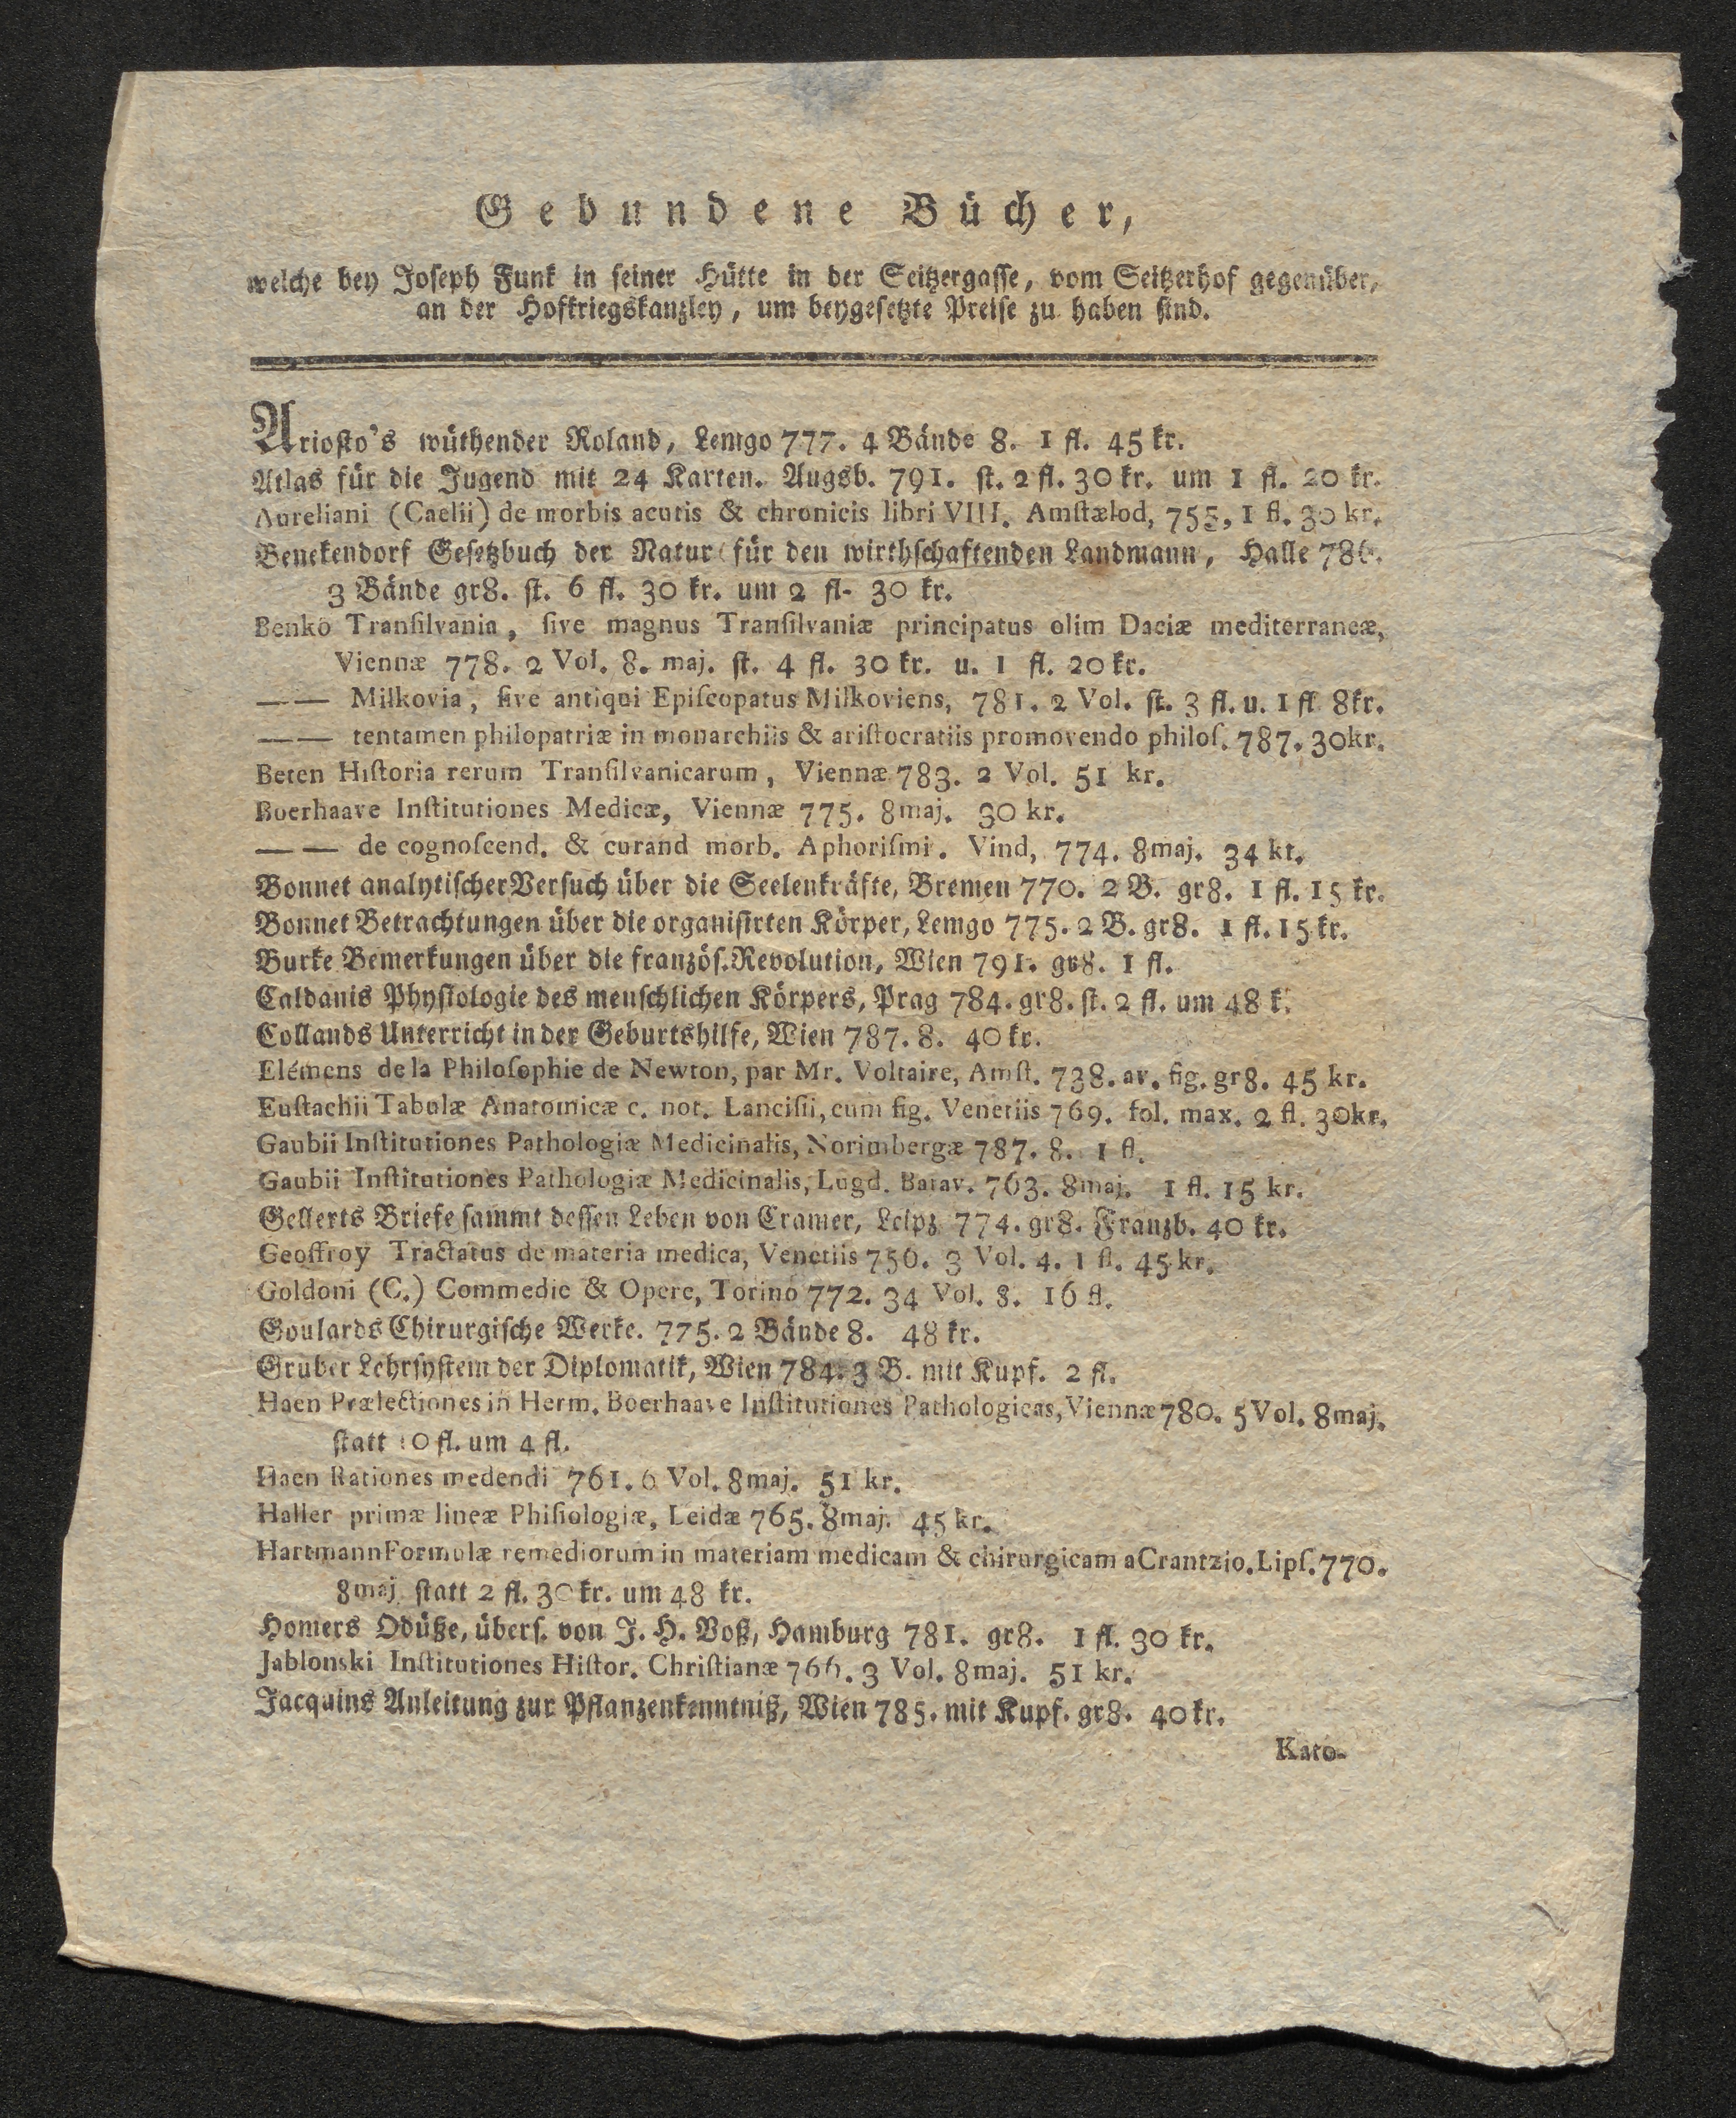 Gebundene Bücher,
welche bey Joseph Funk in seiner Hütte in der Seitzergasse, vom Seitzerhof gegenüber,
an der Hofkriegskanzley, um beygesetzte Preise zu haben sind.
Ariosto's wüthender Roland, Lemgo 777. 4 Bände 8. 1 fl. 45 kr.
Atlas für die Jugend mit 24 Karten. Augsb. 791. st. 2 fl. 30 kr. um 1 fl. 20 kr.
Aureliani (Caelii) de morbis acutis & chronicis libri VIII. Amſtælod, 755, 1 fl. 30 kr.
Benekendorf Gesetzbuch der Natur für den wirthschaftenden Landmann, Halle 786.
3 Bände gr8. st. 6 fl. 30 kr. um 2 fl- 30 kr.
Benkö Tranſilvania, ſive magnus Tranſilvaniæ principatus olim Daciæ mediterraneæ,
Viennæ 778. 2 Vol. 8. maj. st. 4 fl. 30 kr. u. 1 fl. 20 kr.
—— Milkovia, ſive antiqui Epiſcopatus Milkoviens, 781. 2 Vol. st. 3 fl. u. 1 fl 8kr.
—— tentamen philopatriæ in monarchiis & ariſtocratiis promovendo philoſ. 787. 30kr.
Beten Hiſtoria rerum Tranſilvanicarum, Viennæ 783. 2 Vol. 51 kr.
Boerhaave Inſtitutiones Medicæ, Viennæ 775. 8maj. 30 kr.
—— de cognoſcend. & curand morb. Aphoriſmi. Vind, 774. 8maj. 34 kr.
Bonnet analytischer Versuch über die Seelenkräfte, Bremen 770. 2 B. gr8. 1 fl. 15 kr.
Bonnet Betrachtungen über die organisirten Körper, Lemgo 775. 2 B. gr8. 1 fl. 15 kr.
Burke Bemerkungen über die französ. Revolution, Wien 791. gr8. 1 fl.
Caldanis Physiologie des menschlichen Körpers, Prag 784. gr8. st. 2 fl. um 48 k.
Collands Unterricht in der Geburtshilfe, Wien 787. 8. 40 kr.
Elémens de la Philoſophie de Newton, par Mr. Voltaire, Amſt. 738. av. fig. gr8. 45 kr.
Euſtachii Tabulæ Anatomicæ c. not. Lanciſii, cum fig. Venetiis 769. fol. max. 2 fl. 30kr.
Gaubii Inſtitutiones Pathologiæ Medicinalis, Norimbergæ 787. 8. 1 fl.
Gaubii Inſtitutiones Pathologiæ Medicinalis, Lugd. Batav. 763. 8maj. 1 fl. 15 kr.
Gellerts Briefe sammt dessen Leben von Cramer, Leipz 774. gr8. Franzb. 40 kr.
Geoffroy Tractatus de materia medica, Venetiis 756. 3 Vol. 4. 1 fl. 45 kr.
Goldoni (C.) Commedie & Opere, Torino 772. 34 Vol. 8. 16 fl.
Goulards Chirurgische Werke. 775. 2 Bände 8. 48 kr.
Gruber Lehrsystem der Diplomatik, Wien 784. 3 B. mit Kupf. 2 fl.
Haen Prælectiones in Herm. Boerhaave Inſtitutiones Pathologicas, Viennæ 780. 5 Vol. 8maj.
statt 10 fl. um 4 fl.
Haen Rationes medendi 761. 6 Vol. 8maj. 51 kr.
Haller primæ lineæ Phiſiologiæ, Leidæ 765. 8maj. 45 kr.
Hartmann Formulæ remediorum in materiam medicam & chirurgicam a Crantzio. Lipſ. 770.
8maj. statt 2 fl. 30 kr. um 48 kr.
Homers Odüße, übers. von J. H. Voß, Hamburg 781. gr8. 1 fl. 30 kr.
Jablonski Inſtitutiones Hiſtor. Chriſtianæ 766. 3 Vol. 8maj. 51 kr.
Jacquins Anleitung zur Pflanzenkenntniß, Wien 785. mit Kupf. gr8. 40 kr.
Kato-